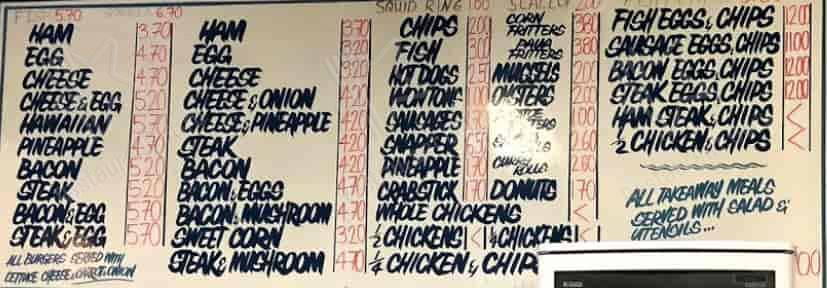 FISH 5.70 6.70
HAM 3.70
EGG 4.70
CHEESE 4.70
CHEESE & EGG 5.20
HAWAIIAN 5.70
PINEAPPLE 4.70
BACON 5.20
STEAK 5.20
BACON & EGG 5.70
STEAK & EGG 5.70
ALL BURGERS SERVED WITH
LETTUCE CHEESE, CARROT, ONION
HAM 3.70
EGG 3.20
CHEESE 3.20
CHEESE & ONION 4.20
CHEESE & PINEAPPLE 4.20
STEAK 4.20
BACON 4.20
BACON & EGGS 4.70
BACON & MUSHROOM 4.70
SWEET CORN 3.20
STEAK & MUSHROOM 4.70
SQUID RING 1.60
CHIPS 2.00
FISH 3.00
HOT DOGS 2.50
WONTONS
SAUSAGES
SNAPPER 6.50
PINEAPPLE 1.70
CRABSTICK 1.70
WHOLE CHICKENS <
½ CHICKENS < ¼ CHICKENS <
¼ CHICKEN & CHIP
SCALLOP 2.00
CORN FRITTERS 3.80
PAUA FRITTERS 3.80
MUSSELS 2.00
OYSTERS 2.00
1.00
2.60
CURRY ROLLS 2.60
DONUTS 1.70
FISH EGGS & CHIPS 12.00
SAUSAGE EGGS & CHIPS 11.00
BACON EGGS & CHIPS 12.00
STEAK EGGS & CHIPS 12.00
HAM STEAK & CHIPS <
½ CHICKEN & CHIPS <
ALL TAKEAWAY MEALS
SERVED WITH SALAD &
UTENSILS...